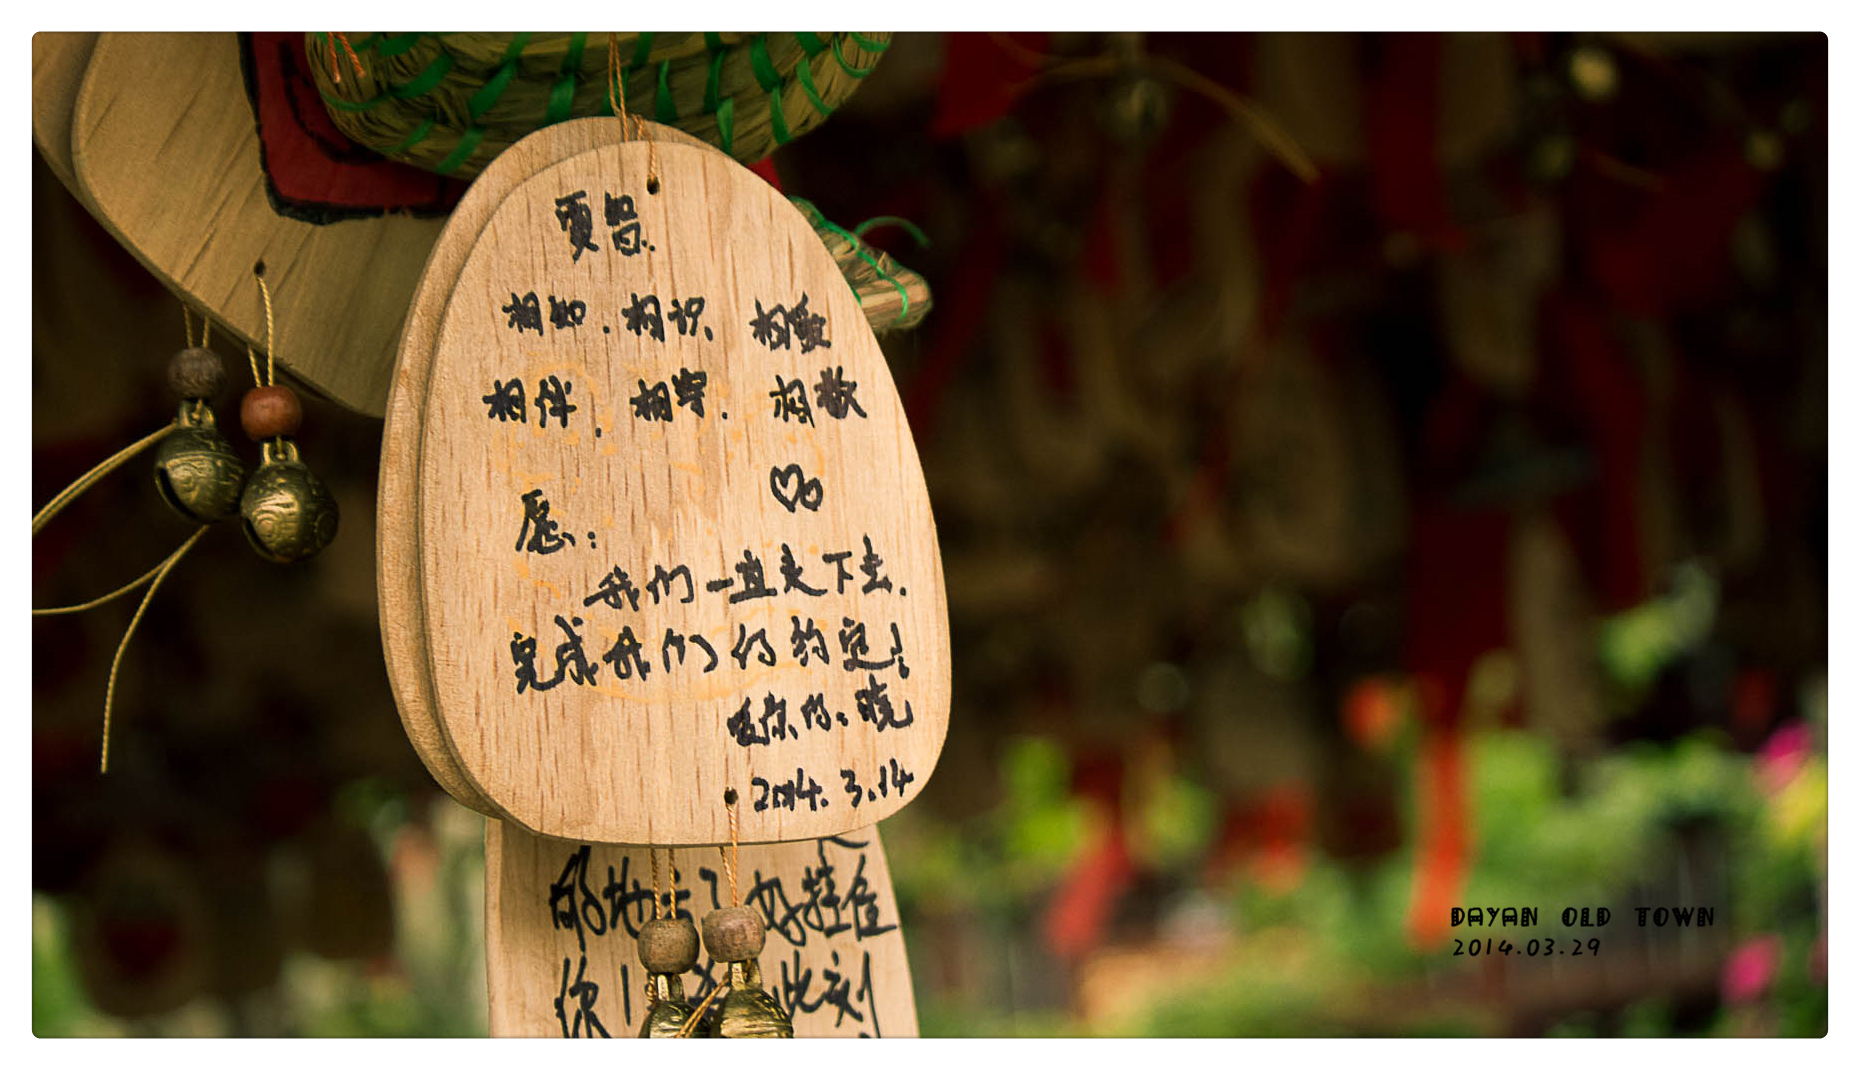 相知.相识、相爱
相伴.相守.相敬
愿:
我们一直走下去.
完成我们的约定!
爱你的:晓
2014.3.14
好挂住
你 此刻
DAYAN OLD TOWN
2014.03.29